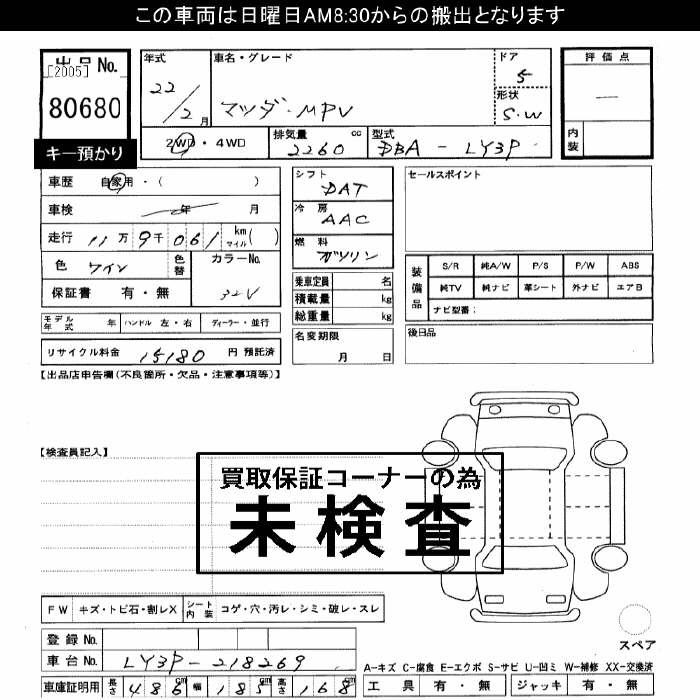 この車両は日曜日AM8:30からの搬出となります
出品 No.
[2005]
80680
キー預かり
年式
22/2月
車名・グレード
マツダ・MPV
ドア
5
形状
S.W
評価点
—
内装
2WD・4WD
排気量 cc
2260
型式
DBA - LY3P
車歴 自家用・( )
車検 年 月
走行 11万9千061 km マイル( )
色 ワイン
色替
カラーNo.
32V
保証書 有・無
シフト
DAT
冷房
AAC
燃料
ガソリン
乗車定員 名
積載量 kg
総重量 kg
セールスポイント
装備品
S/R 純A/W P/S P/W ABS
純TV 純ナビ 革シート 外ナビ エアB
ナビ型番:
モデル年式 年 ハンドル 左・右 ディーラー・並行
名変期限
月 日
後日品
リサイクル料金 15180 円 預託済
【出品店申告欄(不良箇所・欠品・注意事項等)】
【検査員記入】
買取保証コーナーの為
未検査
FW キズ・トビ石・割レX
シート内装 コゲ・穴・汚レ・シミ・破レ・スレ
登録 No.
車台 No. LY3P-218269
車庫証明用 長さ 486cm 幅 185cm 高さ 168cm
スペア
A-キズ C-腐食 E-エクボ S-サビ U-凹ミ W-補修 XX-交換済
工具 有・無 ジャッキ 有・無